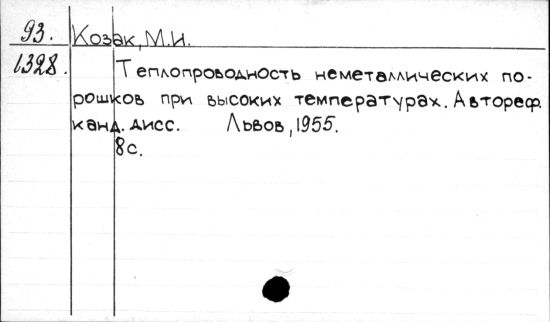 93. Козак, М.И.
1328. Теплопроводность неметаллических по-
рошков при высоких температурах. Автореф.
канд. дисс. Львов, 1955.
8с.